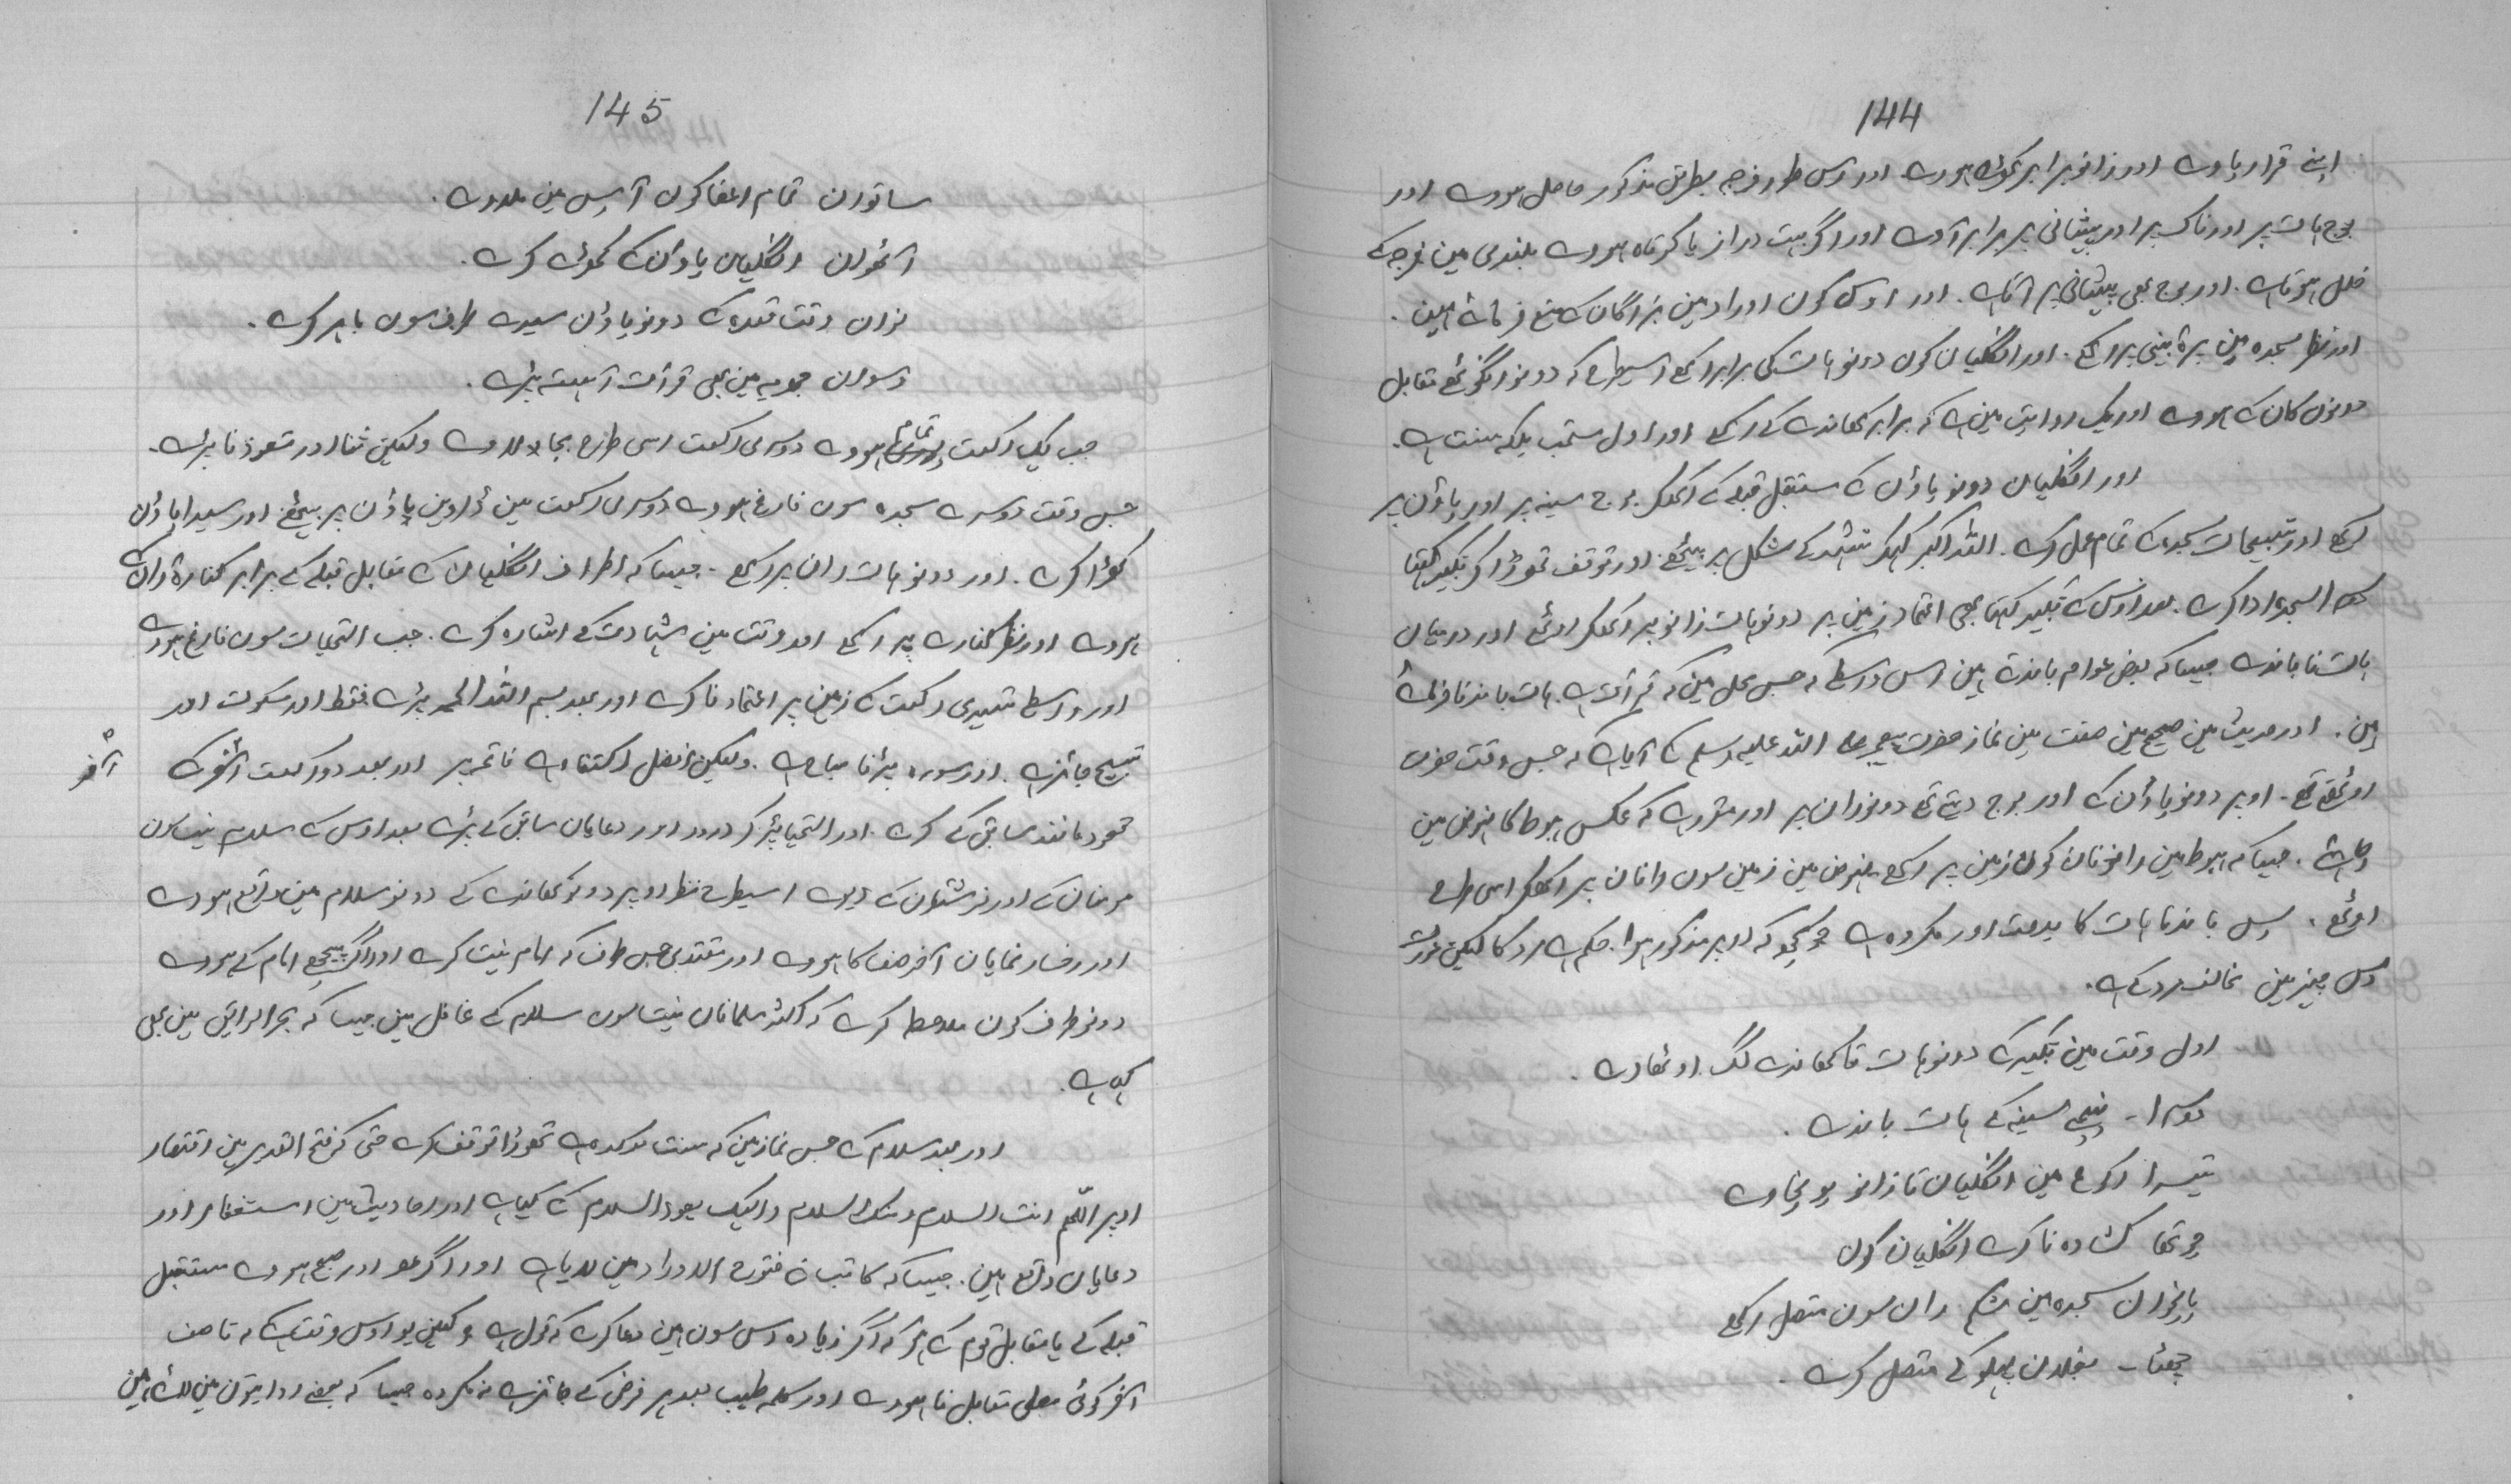 144
اپنے قرار پاوے اور زانو برابر کھڑے ہووے اور اس طور فرجہ بطریق مذکور حاصل ہووے اور
بوج ہات پر اور ناک پر اور پیشانی پر برابر آوے اور اگر بہت دراز یا کوتاہ ہووے بلندی مین فرجہ کے
خلل ہوتا ہے. اور بوج بھی پیشانی پر آتا ہے. اور اوس کون اوراد مین بزرگان کے منع فرمائے ہین.
اور نظر سجدہ مین پرۂ بینی پر رکھے. اور انگلیان کون دونو ہات کی برابر رکھے اسیطرح کہ دونو انگوٹھے مقابل
دونون کان کے ہووے اور یک روایت مین ہے کہ برابر کھاندے کے رکھے اور اول مستحب بلکہ سنت ہے.
اور انگلیان دونو پاؤن کے مستقبل قبلہ کے رکھکر بوج سینہ پر اور پاؤن پر
رکھے اور تسبیحات سجدہ کے تمام عمل کرے. اللہ اکبر کہکر تشہد کے شکل پر بیٹھے اور توقف تھوڑا کر تکبیر کہتا
سجدہ ادا کرے. بعد اوس کے تکبیر کہتا بے اعتماد زمین پر دونو ہات زانو پر رکھکر اوٹھے اور درمیان
ہات نا باندے جیسا کہ بعض عوام باندتے ہین اس واسطے کہ جس محل مین کہ قرأت ہے ہات باندنا فرمائے
ہین. اور حدیث مین صحیح مین صفت مین نماز حضرت پیغمبر صلی اللہ علیہ وسلم کے آیا ہے کہ جس وقت حضرت
اوٹھتے تھے. اوپر دونو پاؤن کے اور بوج دیتے تھے دونو ران پر اور مقرر ہے کہ عکس ہبوط کا نہوض مین
جیسا کہ ہبوط مین زانوان کون زمین پر رکھے نہوض مین زمین سون رانان پر رکھکر اسی طرح
اوٹھے. پس باندنا ہات کا بدعت اور مکروہ ہے جو کچھ کہ اوپر مذکور ہوا. حکم ہے مرد کا لیکن عورت
دس چیز مین مخالف مرد کے ہے.
اول وقت مین تکبیر کے دونو ہات تا کھاندے لگ اوٹھاوے.
دوسرا۔ نیچے سینہ کے ہات باندے.
تیسرا رکوع مین انگلیان تا زانو پونچاوے
چوتھا کشادہ نا کرے انگلیان کون
پانچوان سجدہ مین شکم ران سون متصل رکھے
چھٹا۔ بغلان پہلو کے متصل کرے.
145
ساتوان تمام اعضا کون آپس مین ملاوے.
آٹھوان انگلیان پاؤن کے کھڑے کرے.
نوان وقت قعدہ کے دونو پاؤن سیدے طرف سون باہر کرے.
دسوان جہریہ مین بھی قرأت آہستہ پڑے.
جب یک رکعت تمام ہووے دوسری رکعت اسی طرح بجا لاوے ولیکن ثنا اور تعوذ نا پڑے.
جس وقت دوسرے سجدہ سون فارغ ہووے دوسری رکعت مین ڈاوین پاؤن پر بیٹھے اور سیدا پاؤن
کھڑا کرے. اور دونو ہات ران پر رکھے. جیسا کہ اطراف انگلیان کے مقابل قبلہ کے برابر کنارۂ ران کے
ہووے اور نظر کنارے پر رکھے اور وقت مین شہادت کے اشارہ کرے. جب التحیات سون فارغ ہووے
اور واسطے تیسری رکعت کے زمین پر اعتماد نا کرے اور بعد بسم اللہ الحمد پڑے فقط اور سکوت اور
تسبیح جائز ہے. اور سورہ پڑنا مباح ہے. ولیکن افضل اکتفا ہے فاتحہ پر اور بعد دو رکعت آخر کے
آخر
قعود مانند سابق کے کرے اور التحیات پڑ کر درود اور دعایان سابق کے پڑے بعد اوس کے سلام نیت سون
مومنان کے اور فرشتیان کے دیوے اسیطرح نظر اوپر دونو کھاندے کے دونو سلام مین واقع ہووے
اور رخسار نمایان آخر صف کا ہووے اور مقتدی جس طرف کہ امام نیت کرے اور اگر پیچھے امام کے ہووے
دونو طرف کون ملاحظہ کرے کہ اکثر مسلمانان نیت سون سلام کے غافل ہین جیسا کہ بحر الرایق مین بھی
کہا ہے.
اور بعد سلام کے جس نماز مین کہ سنت موکدہ ہے تھوڑا توقف کرے حتی کہ فتح القدیر مین اقتصار
اوپر اللّٰھم انت السلام ومنک السلام والیک یعود السلام کے کیا ہے اور احادیث مین استغفار اور
دعایان واقع ہین. جیسا کہ کاتب نے فتوح الاوراد مین لایا ہے اور اگر عصر اور صبح ہووے مستقبل
قبلہ کے یا مقابل قوم کے ہو کہ اگر زیادہ دس سون ہین دعا کرے کہ قول ہے ولیکن یو اوس وقت ہے کہ تا صف
آخر کوئی مصلی مقابل نا ہووے اور کلمہ طیب بعد ہر فرض کے جائز ہے نہ مکروہ جیسا کہ بعضے روایتون مین لائے ہین